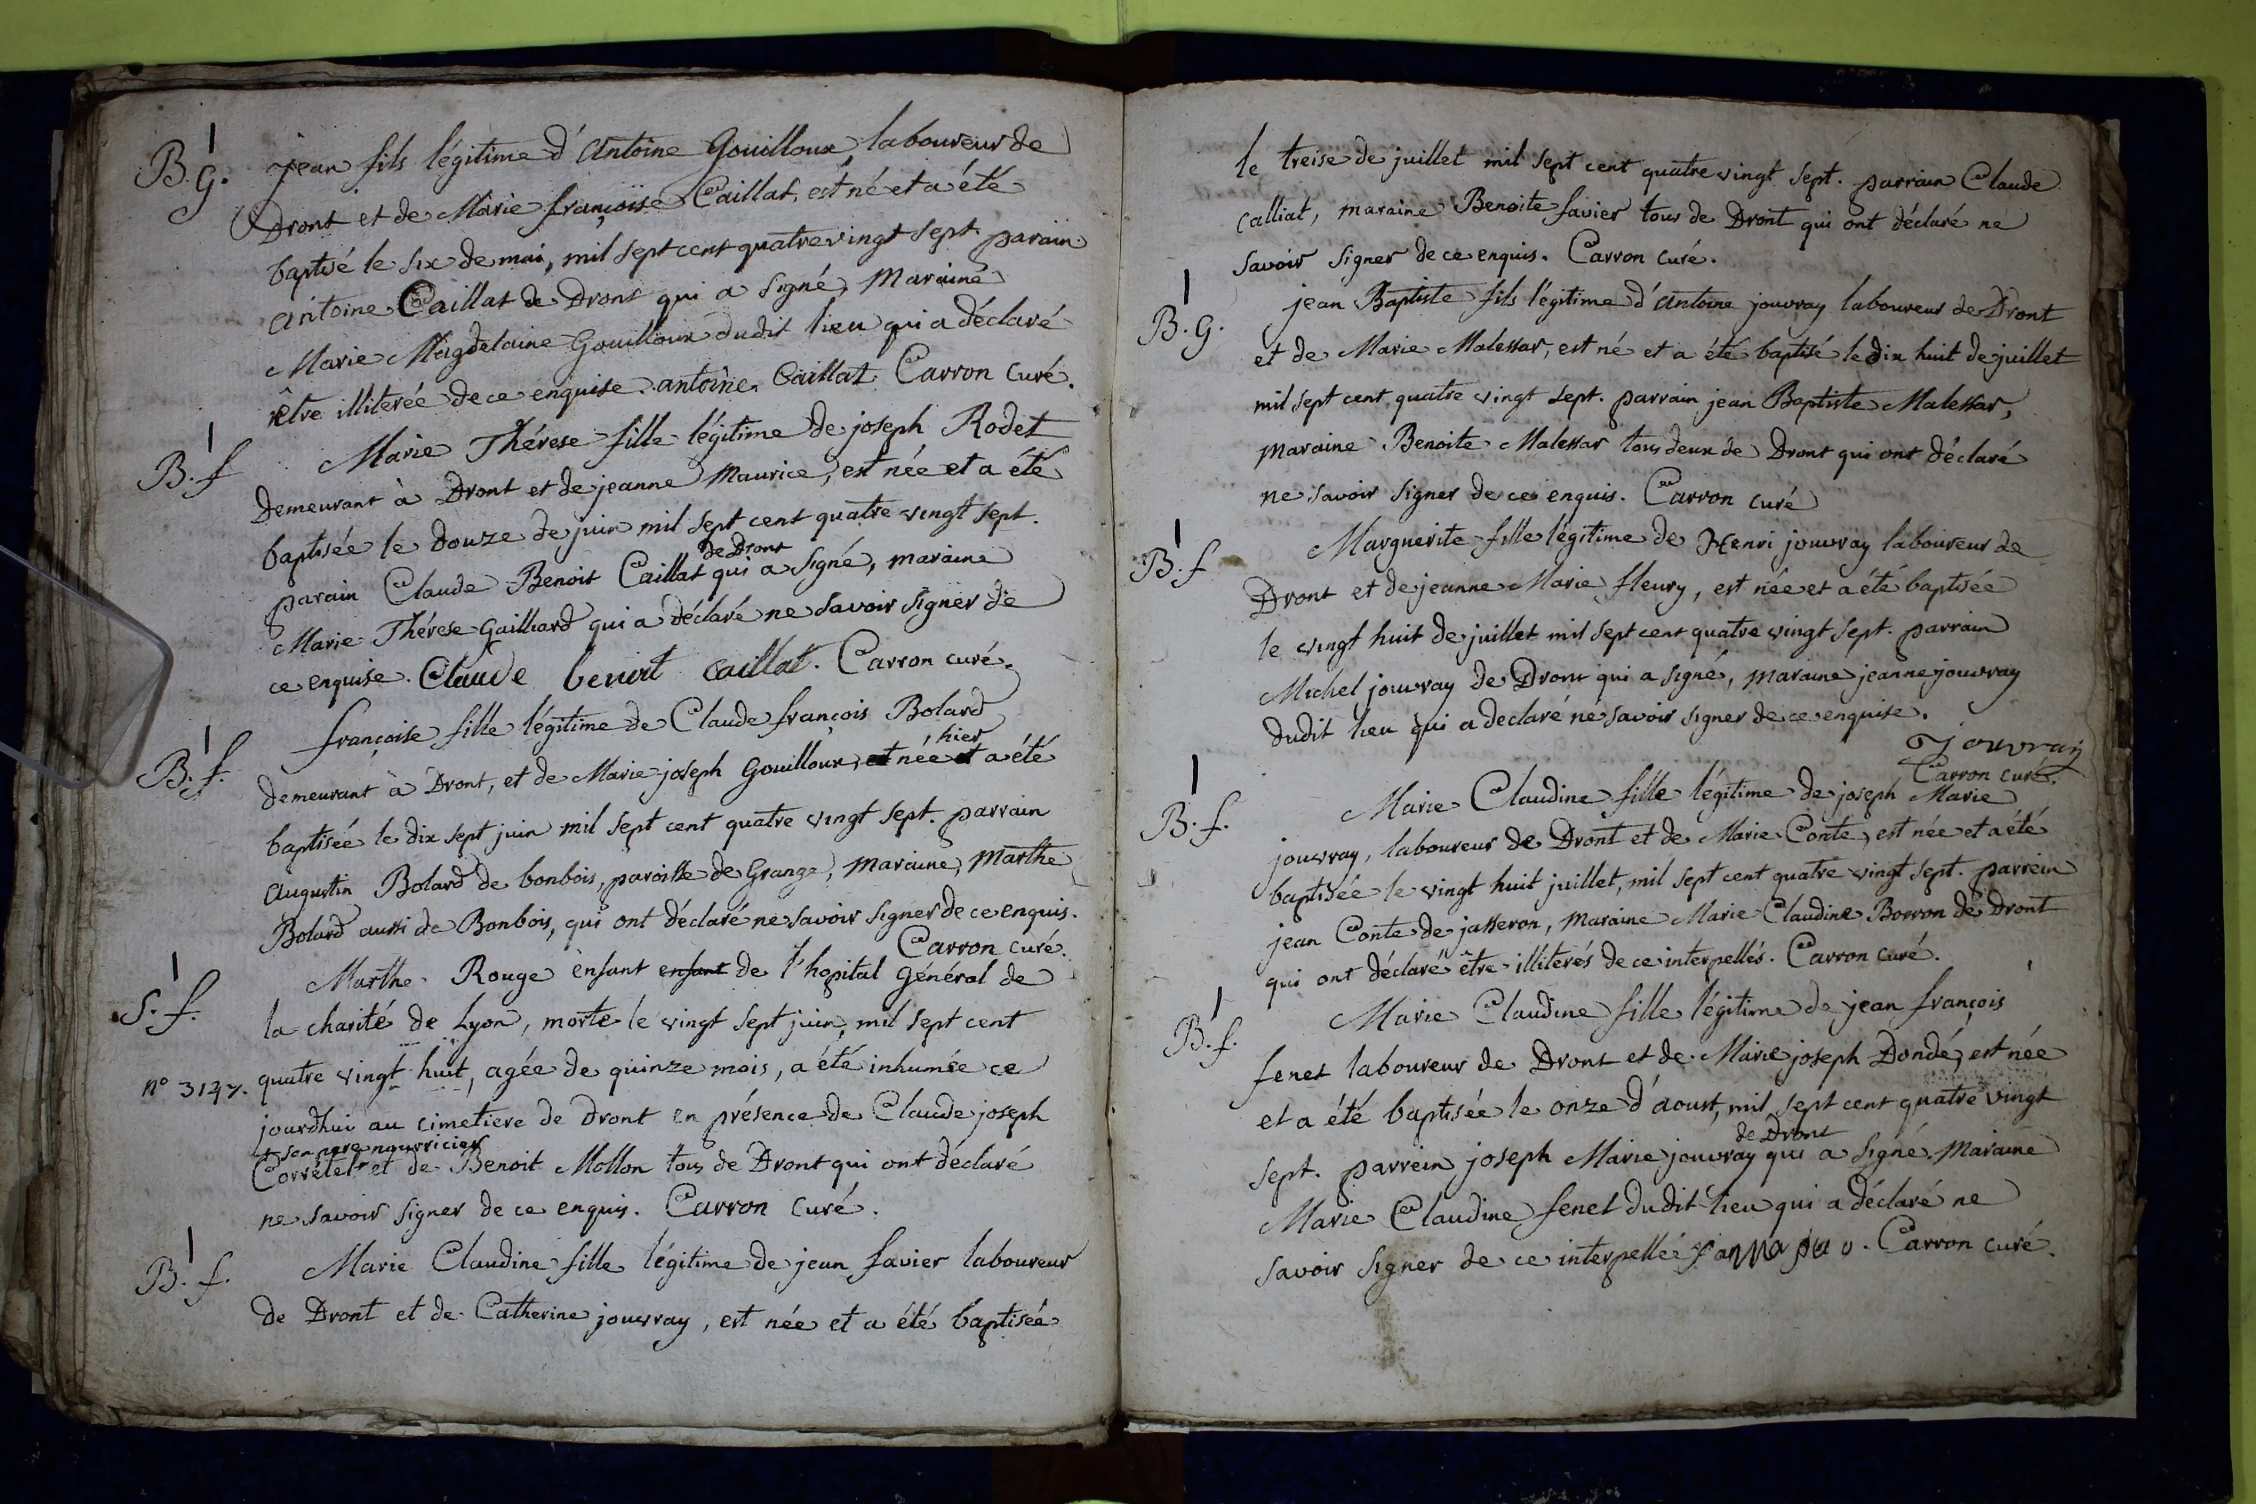 B.G. jean fils légitime d'Antoine Gouilloux, laboureur de
Dront et de Marie françoise Caillat, est né et a été
baptisé le six de mai, mil sept cent quatre vingt sept. parain
antoine Caillat de Dront qui a signé, Maraine
Marie Magdelaine Gouilloux dudit lieu qui a déclaré
être illiterée de ce enquise. antoine Caillat. Carron curé.
B.f Marie Thérese fille légitime de joseph Rodet
demeurant à Dront et de jeanne Maurice, est née et a été
baptisée le douze de juin mil sept cent quatre vingt sept.
de Dront
parain Claude Benoit Caillat qui a signé, maraine
Marie Thérese Gailliard qui a déclaré ne savoir signer de
ce enquise. Claude benoit caillat. Carron curé.
B.f. françoise fille légitime de Claude françois Bolard
hier
demeurant à Dront, et de Marie joseph Gouilloux, et née et a été
baptisée le dix sept juin mil sept cent quatre vingt sept. parrain
augustin Bolard de bonbois, paroisse de Grange, Maraine, Marthe
Bolard aussi de Bonbois, qui ont déclaré ne savoir signer de ce enquis.
Carron curé.
S.f. Marthe Rouge enfant enfant de l'hopital Général de
la charité de Lyon, morte le vingt sept juin, mil sept cent
n° 3147. quatre vingt huit, agée de quinze mois, a été inhumée ce
jourdhui au cimetiere de Dront en présence de Claude joseph
son pere nourricier
Corrétel et de Benoit Mollon tous de Dront qui ont déclaré
ne savoir signer de ce enquis. Carron curé.
B.f. Marie Claudine fille légitime de jean favier laboureur
de Dront et de Catherine jouvray, est née et a été baptisée
le treise de juillet mil sept cent quatre vingt sept. parrain Claude
calliat, maraine Benoite favier tous de Dront qui ont déclaré ne
savoir signer de ce enquis. Carron curé.
B.G. jean Baptiste fils légitime d'antoine jouvray laboureur de Dront
et de Marie Malessar, est né et a été baptisé le dix huit de juillet
mil sept cent quatre vingt sept. parrain jean Baptiste Malessar,
maraine Benoite Malessar tous deux de Dront qui ont déclaré
ne savoir signer de ce enquis. Carron curé
B.f Marguerite fille légitime de Henri jouvray laboureur de
Dront et de jeanne Marie fleury, est née et a été baptisée
le vingt huit de juillet mil sept cent quatre vingt sept. parrain
Michel jouvray de Dront qui a signé, maraine jeanne jouvray
dudit lieu qui a declaré ne savoir signer de ce enquise.
Jouvray
Carron curé.
B.f. Marie Claudine fille légitime de joseph Marie
jouvray, laboureur de Dront et de Marie Conte, est née et a été
baptisée le vingt huit juillet, mil sept cent quatre vingt sept. parrein
jean Conte de jasseron, maraine Marie Claudine Borron de Dront
qui ont déclaré être illiterés de ce interpellés. Carron curé.
B.f. Marie Claudine fille légitime de jean françois
fenet laboureur de Dront et de Marie joseph Dondé, est née
et a été baptisée le onze d'aoust, mil sept cent quatre vingt
de Dront
sept. parrein joseph Marie jouvray qui a signé. Maraine
Marie Claudine fenet dudit lieu qui a déclaré ne
savoir signer de ce interpellée. Carron curé.